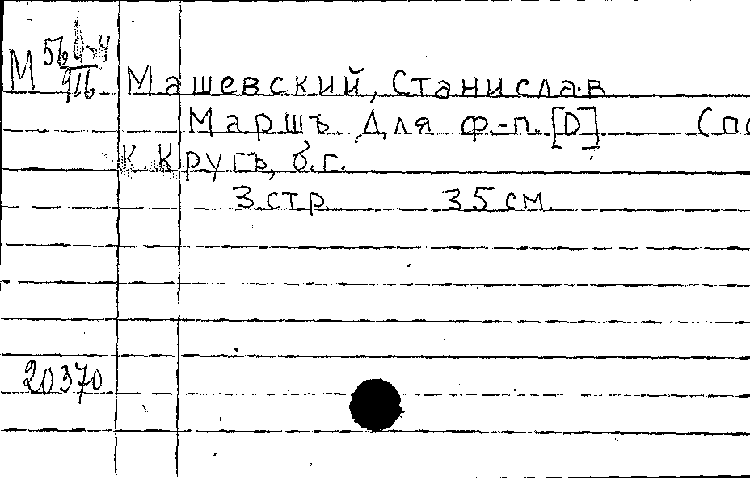 М
916 Машевский, Станислав
Маршъ. Для ф.-п. [D] (по
К. Кругъ, б.г.
3 стр 35 см.
20370